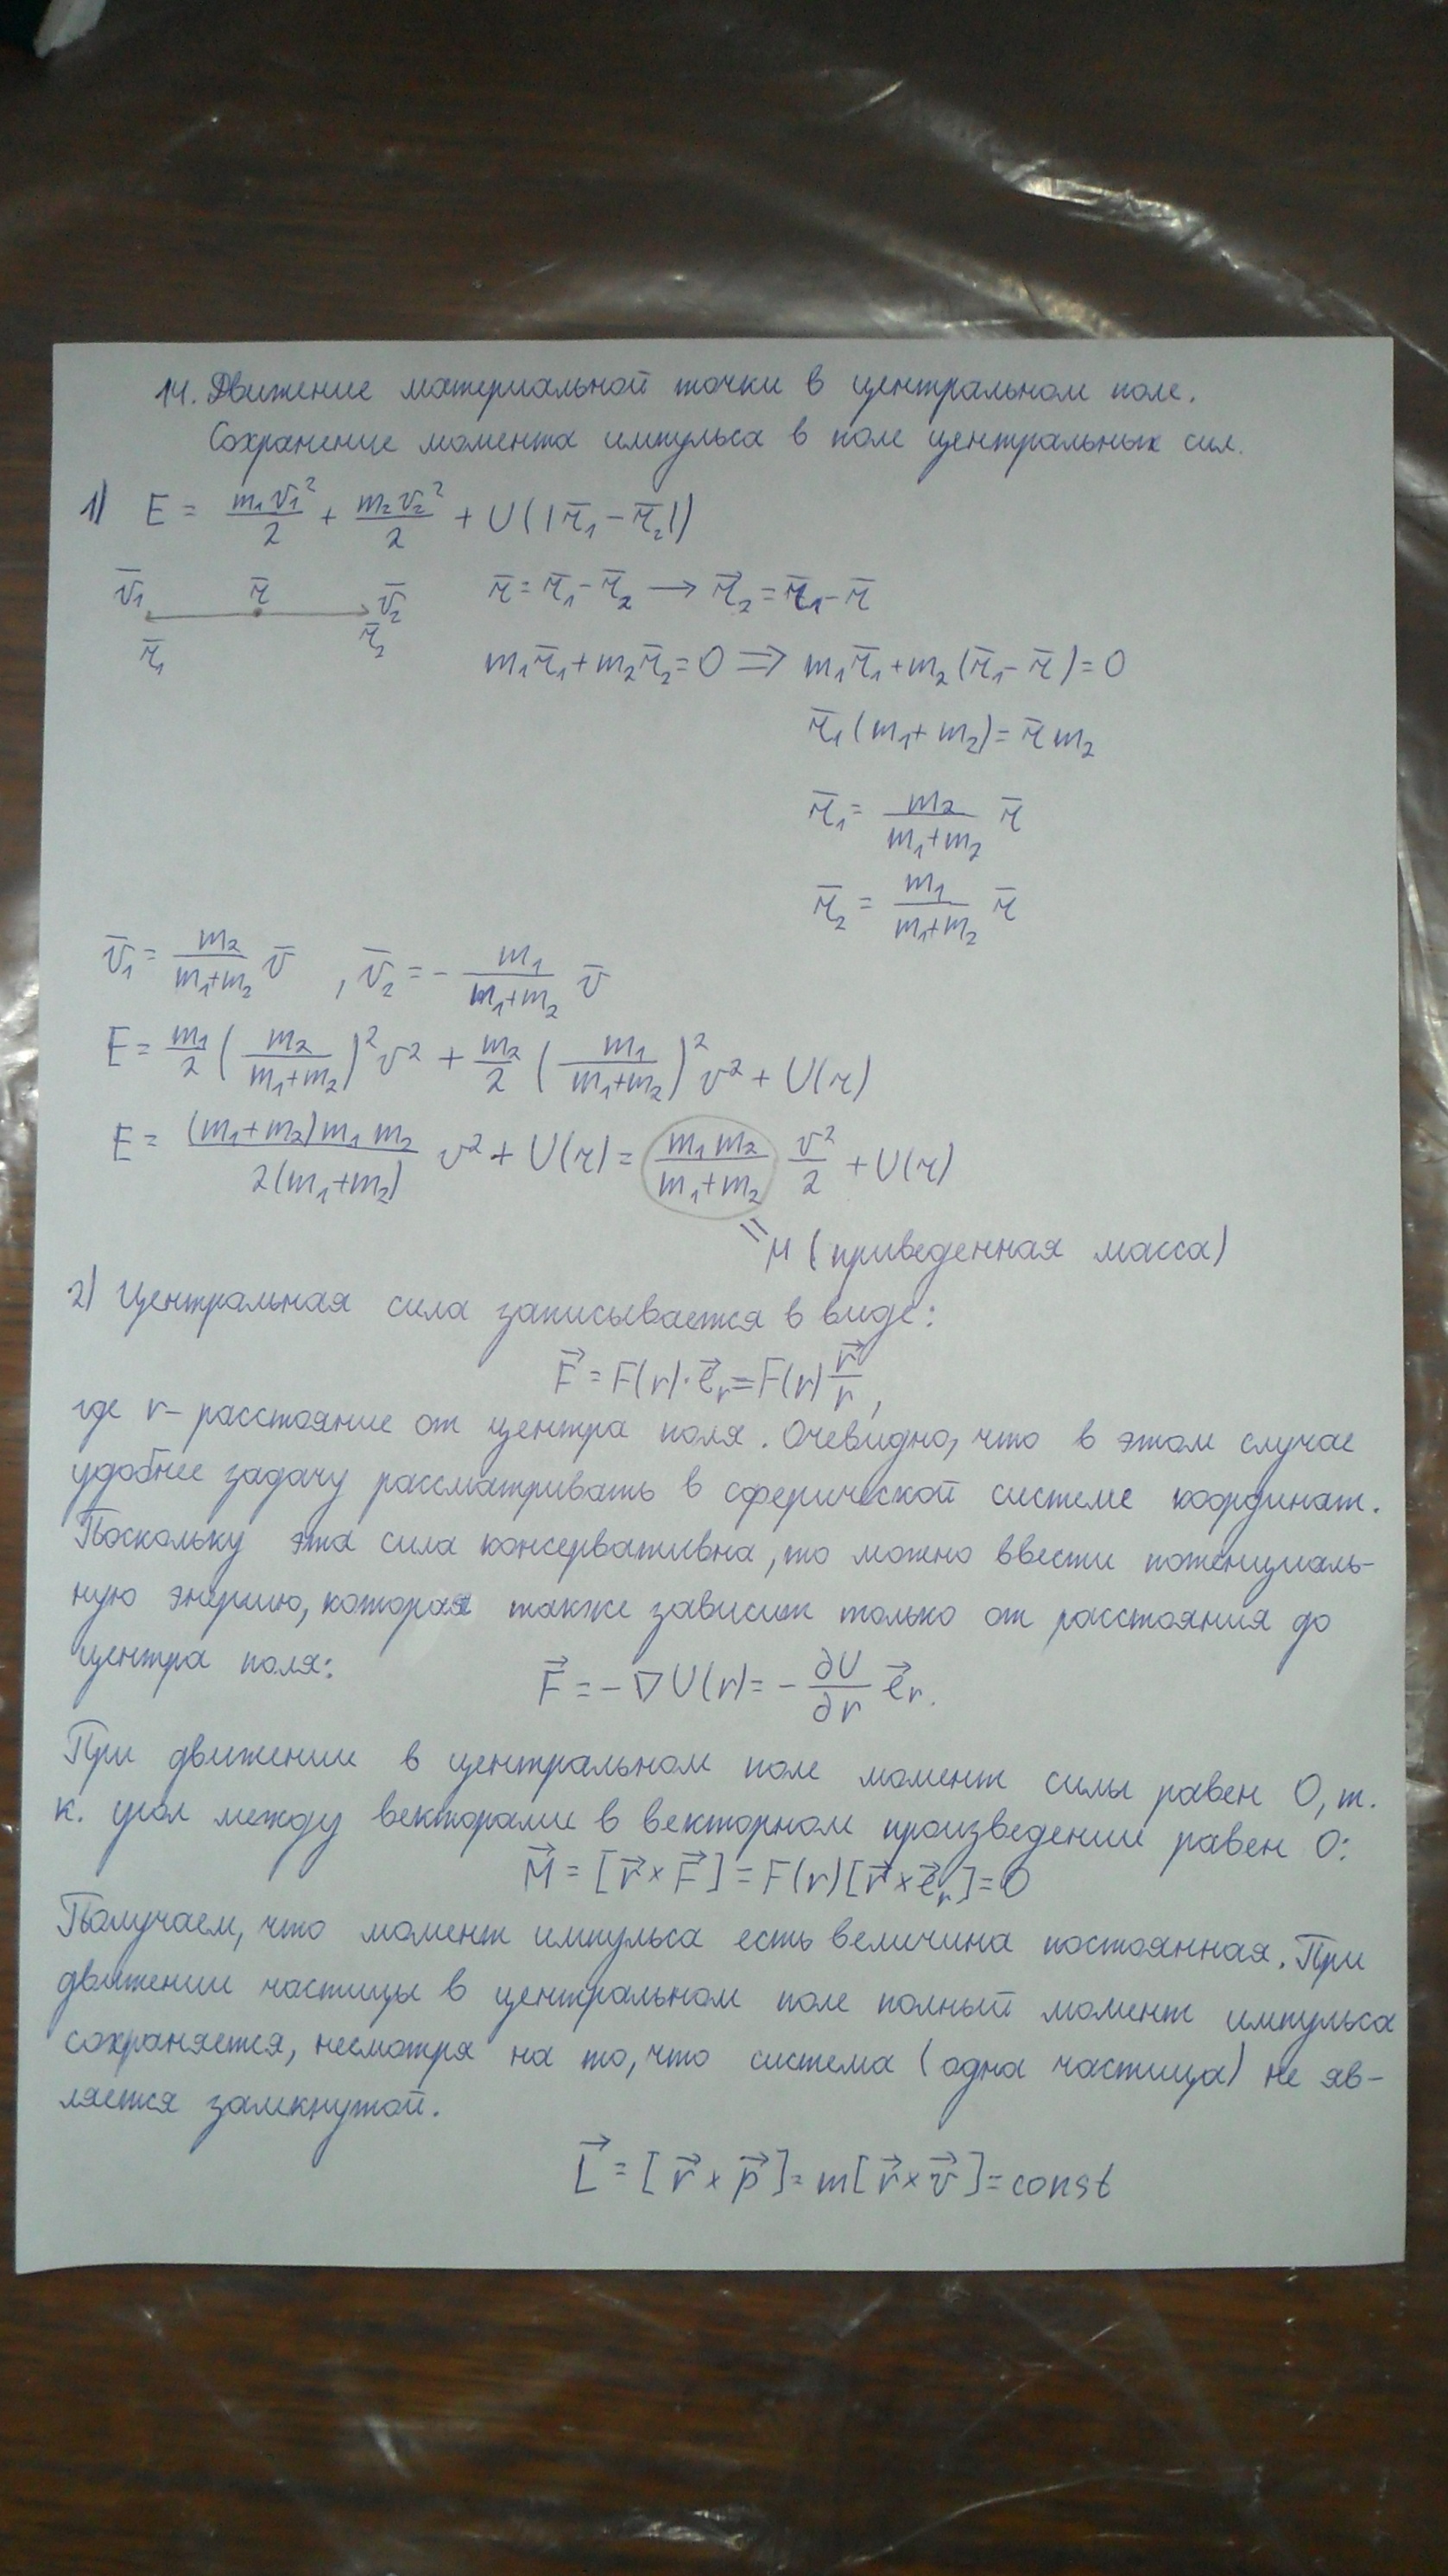 14. Движение материальной точки в центральном поле.
Сохранение момента импульса в поле центральных сил.
1) E = m₁v₁²/2 + m₂v₂²/2 + U(|r̅₁ - r̅₂|)
v̅₁ r̅ v̅₂
r̅₁ r̅₂
r̅ = r̅₁ - r̅₂ → r̅₂ = r̅₁ - r̅
m₁r̅₁ + m₂r̅₂ = 0 ⇒ m₁r̅₁ + m₂(r̅₁ - r̅) = 0
r̅₁(m₁ + m₂) = r̅ m₂
r̅₁ = m₂/(m₁+m₂) r̅
r̅₂ = m₁/(m₁+m₂) r̅
v̅₁ = m₂/(m₁+m₂) v̅ , v̅₂ = - m₁/(m₁+m₂) v̅
E = m₁/2 (m₂/(m₁+m₂))² v² + m₂/2 (m₁/(m₁+m₂))² v² + U(r)
E = (m₁+m₂)m₁m₂/2(m₁+m₂) v² + U(r) = m₁m₂/(m₁+m₂) v²/2 + U(r)
= μ (приведенная масса)
2) Центральная сила записывается в виде:
F⃗ = F(r)·e⃗ᵣ = F(r) r⃗/r ,
где r - расстояние от центра поля. Очевидно, что в этом случае
удобнее задачу рассматривать в сферической системе координат.
Поскольку эта сила консервативна, то можно ввести потенциаль-
ную энергию, которая также зависит только от расстояния до
центра поля:
F⃗ = - ∇U(r) = - ∂U/∂r e⃗ᵣ.
При движении в центральном поле момент силы равен 0, т.
к. угол между векторами в векторном произведении равен 0:
M⃗ = [r⃗ × F⃗] = F(r)[r⃗ × e⃗ᵣ] = 0
Получаем, что момент импульса есть величина постоянная. При
движении частицы в центральном поле полный момент импульса
сохраняется, несмотря на то, что система (одна частица) не яв-
ляется замкнутой.
L⃗ = [r⃗ × p⃗] = m[r⃗ × v⃗] = const